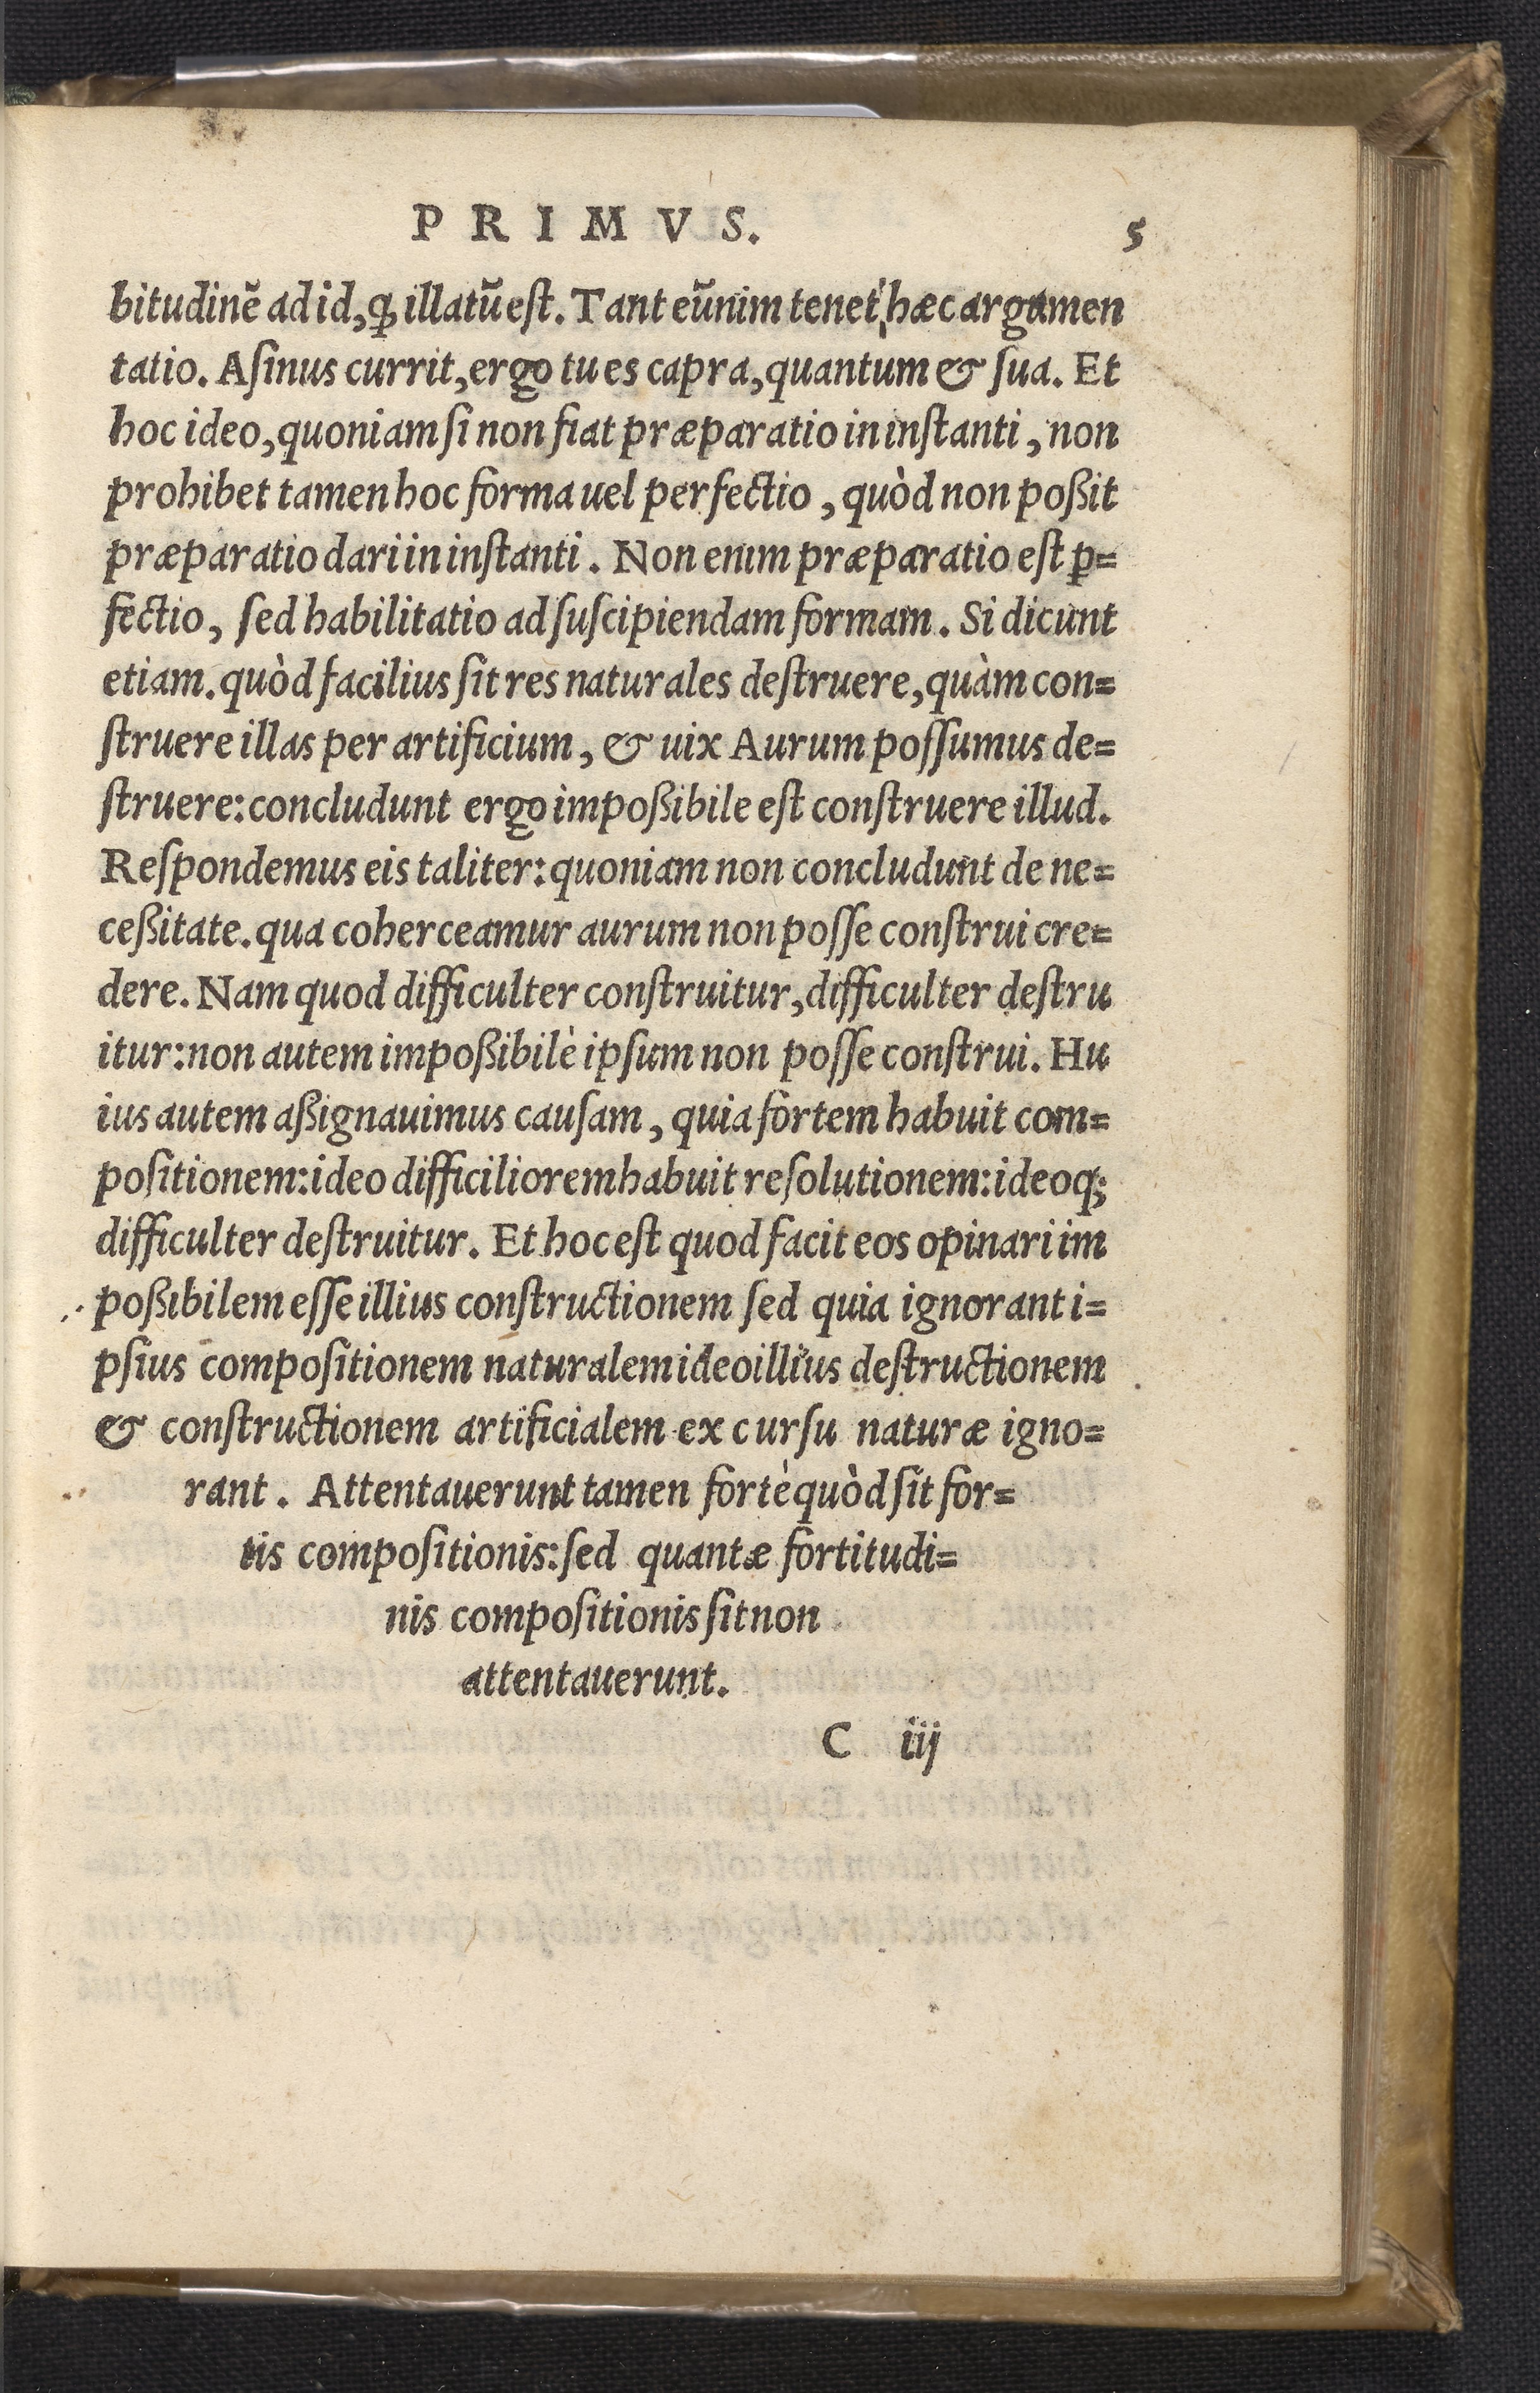 PRIMVS. 5
bitudinē ad id, ꝙ illatū est. Tant eūnim tenet hæc argumen
tatio. Aſinus currit, ergo tu es capra, quantum & ſua. Et
hoc ideo, quoniam ſi non fiat præparatio in inſtanti, non
prohibet tamen hoc forma uel perfectio, quòd non poßit
præparatio dari in inſtanti. Non enim præparatio eſt ꝑ=
fectio, ſed habilitatio ad ſuſcipiendam formam. Si dicunt
etiam. quòd facilius ſit res naturales deſtruere, quàm con=
ſtruere illas per artificium, & uix Aurum poſſumus de=
ſtruere: concludunt ergo impoßibile eſt conſtruere illud.
Reſpondemus eis taliter: quoniam non concludunt de ne=
ceßitate. qua coherceamur aurum non poſſe conſtrui cre=
dere. Nam quod difficulter conſtruitur, difficulter deſtru
itur: non autem impoßibilè ipſum non poſſe conſtrui. Hu
ius autem aßignauimus cauſam, quia fortem habuit com=
poſitionem: ideo difficiliorem habuit reſolutionem: ideoq;
difficulter deſtruitur. Et hoc eſt quod facit eos opinari im
poßibilem eſſe illius conſtructionem ſed quia ignorant i=
pſius compoſitionem naturalem ideo illius deſtructionem
& conſtructionem artificialem ex curſu naturæ igno=
rant. Attentauerunt tamen fortè quòd ſit for=
tis compoſitionis: ſed quantæ fortitudi=
nis compoſitionis ſit non
attentauerunt.
C iij